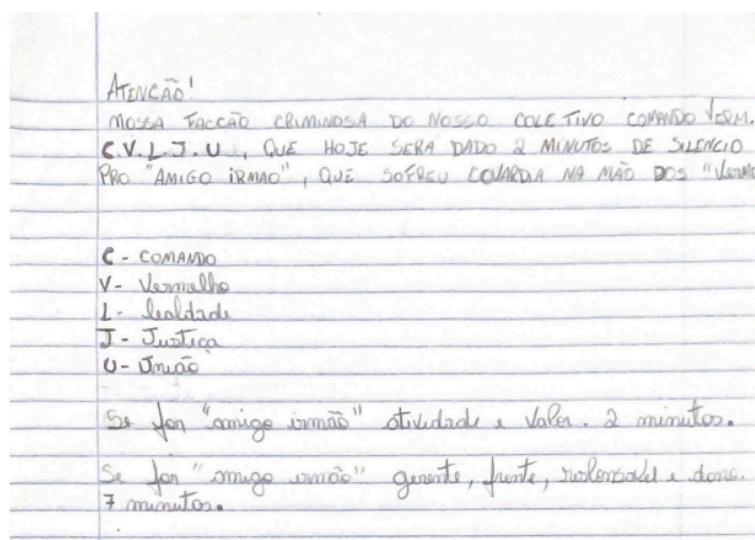 ATENCÃO!
NOSSA FACCÃO CRIMINOSA DO NOSSO COLETIVO COMANDO VERM.
C.V.L.J.U, QUE HOJE SERA DADO 2 MINUTOS DE SILENCIO
PRO "AMIGO IRMAO", QUE SOFREU COVARDIA NA MÃO DOS "Verme
C - COMANDO
V - Vermelho
L - lealdade
J - Justiça
U - União
Se for "amigo irmão" atividade e Valor. 2 minutos.
Se for "amigo irmão" gerente, frente, e dono.
7 minutos.